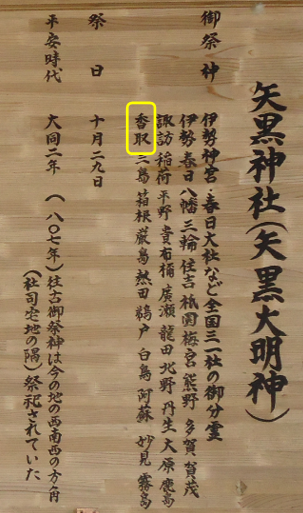 矢黒神社(矢黒大明神)
御祭神 伊勢神宮・春日大社など全国三一社の御分霊
伊勢 春日 八幡 三輪 住吉 祇園 梅宮 熊野 多賀 賀茂
諏訪 稲荷 平野 貴布袮 廣瀬 龍田 北野 丹生 大原 鹿島
香取 三島 箱根 厳島 熱田 鵜戸 白鳥 阿蘇 妙見 霧島
祭日 十月二九日
平安時代 大同二年 (八〇七年)往古御祭神は今の地の西南西の方角
(社司宅地の隅)祭祀されていた